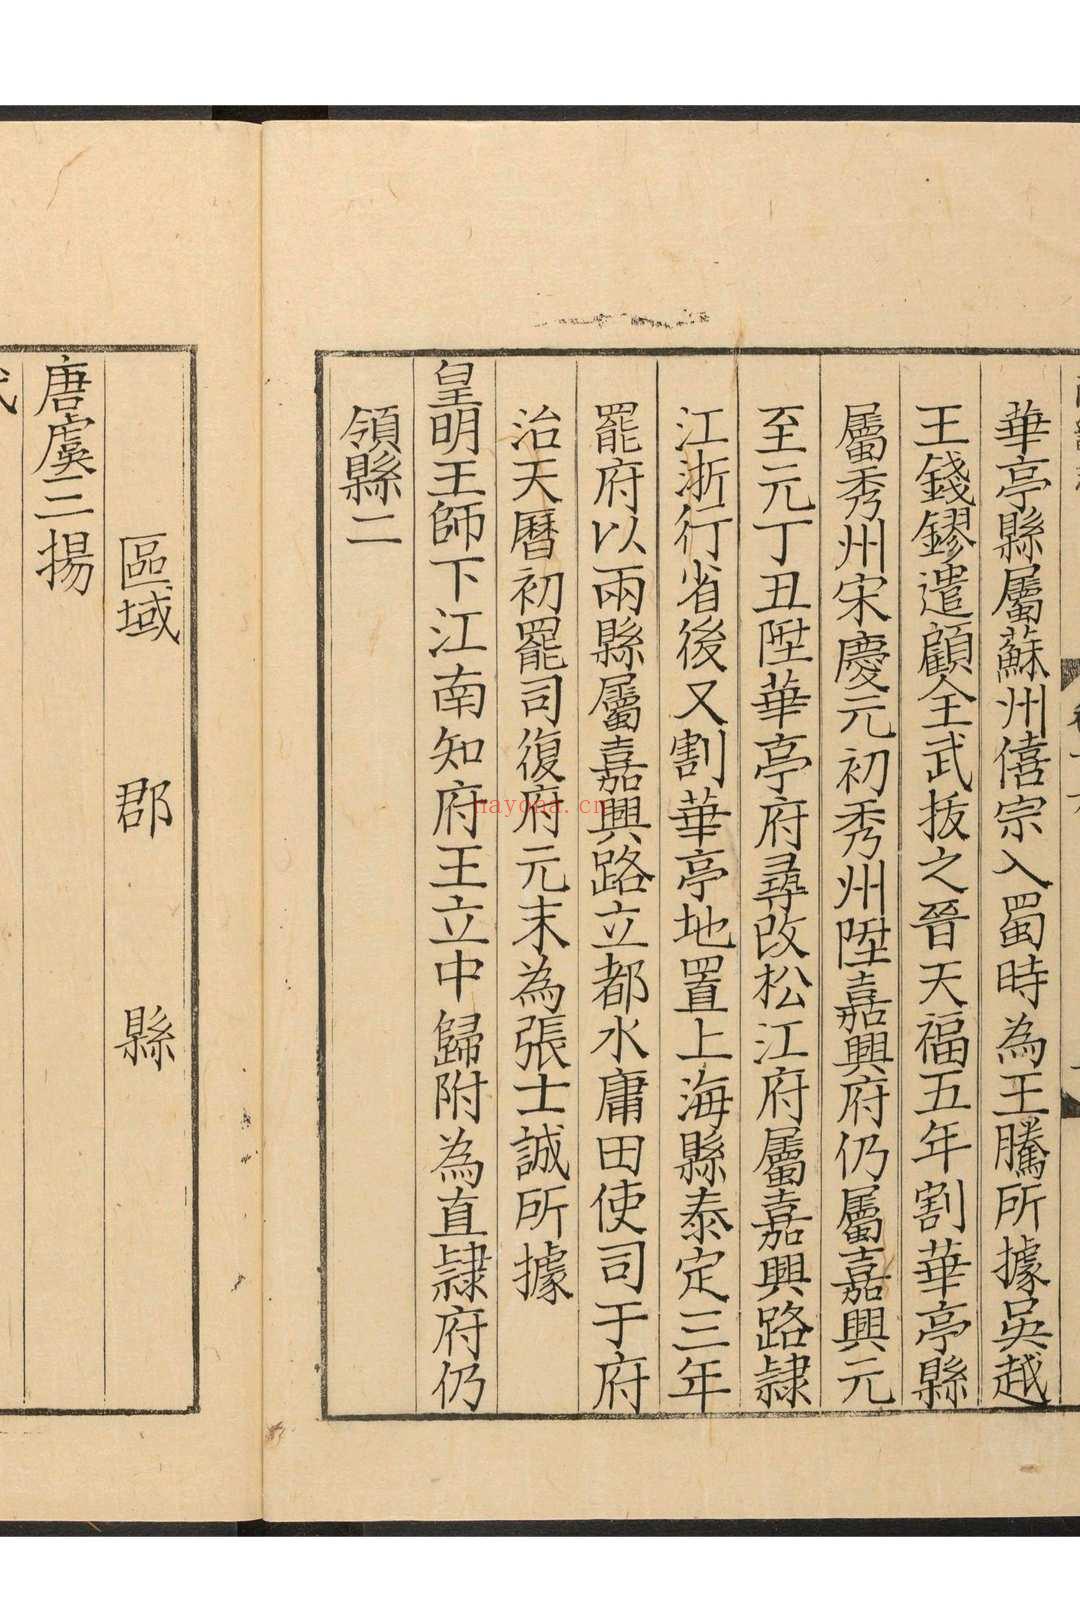 華亭縣屬蘇州僖宗入蜀時為王騰所據吳越
王錢鏐遣顧全武拔之晉天福五年割華亭縣
屬秀州宋慶元初秀州陞嘉興府仍屬嘉興元
至元丁丑陞華亭府尋改松江府屬嘉興路隸
江浙行省後又割華亭地置上海縣泰定三年
罷府以兩縣屬嘉興路立都水庸田使司于府
治天曆初罷司復府元末為張士誠所據
皇明王師下江南知府王立中歸附為直隸府仍
領縣二
區域 郡 縣
唐虞三揚
代
nayona.cn